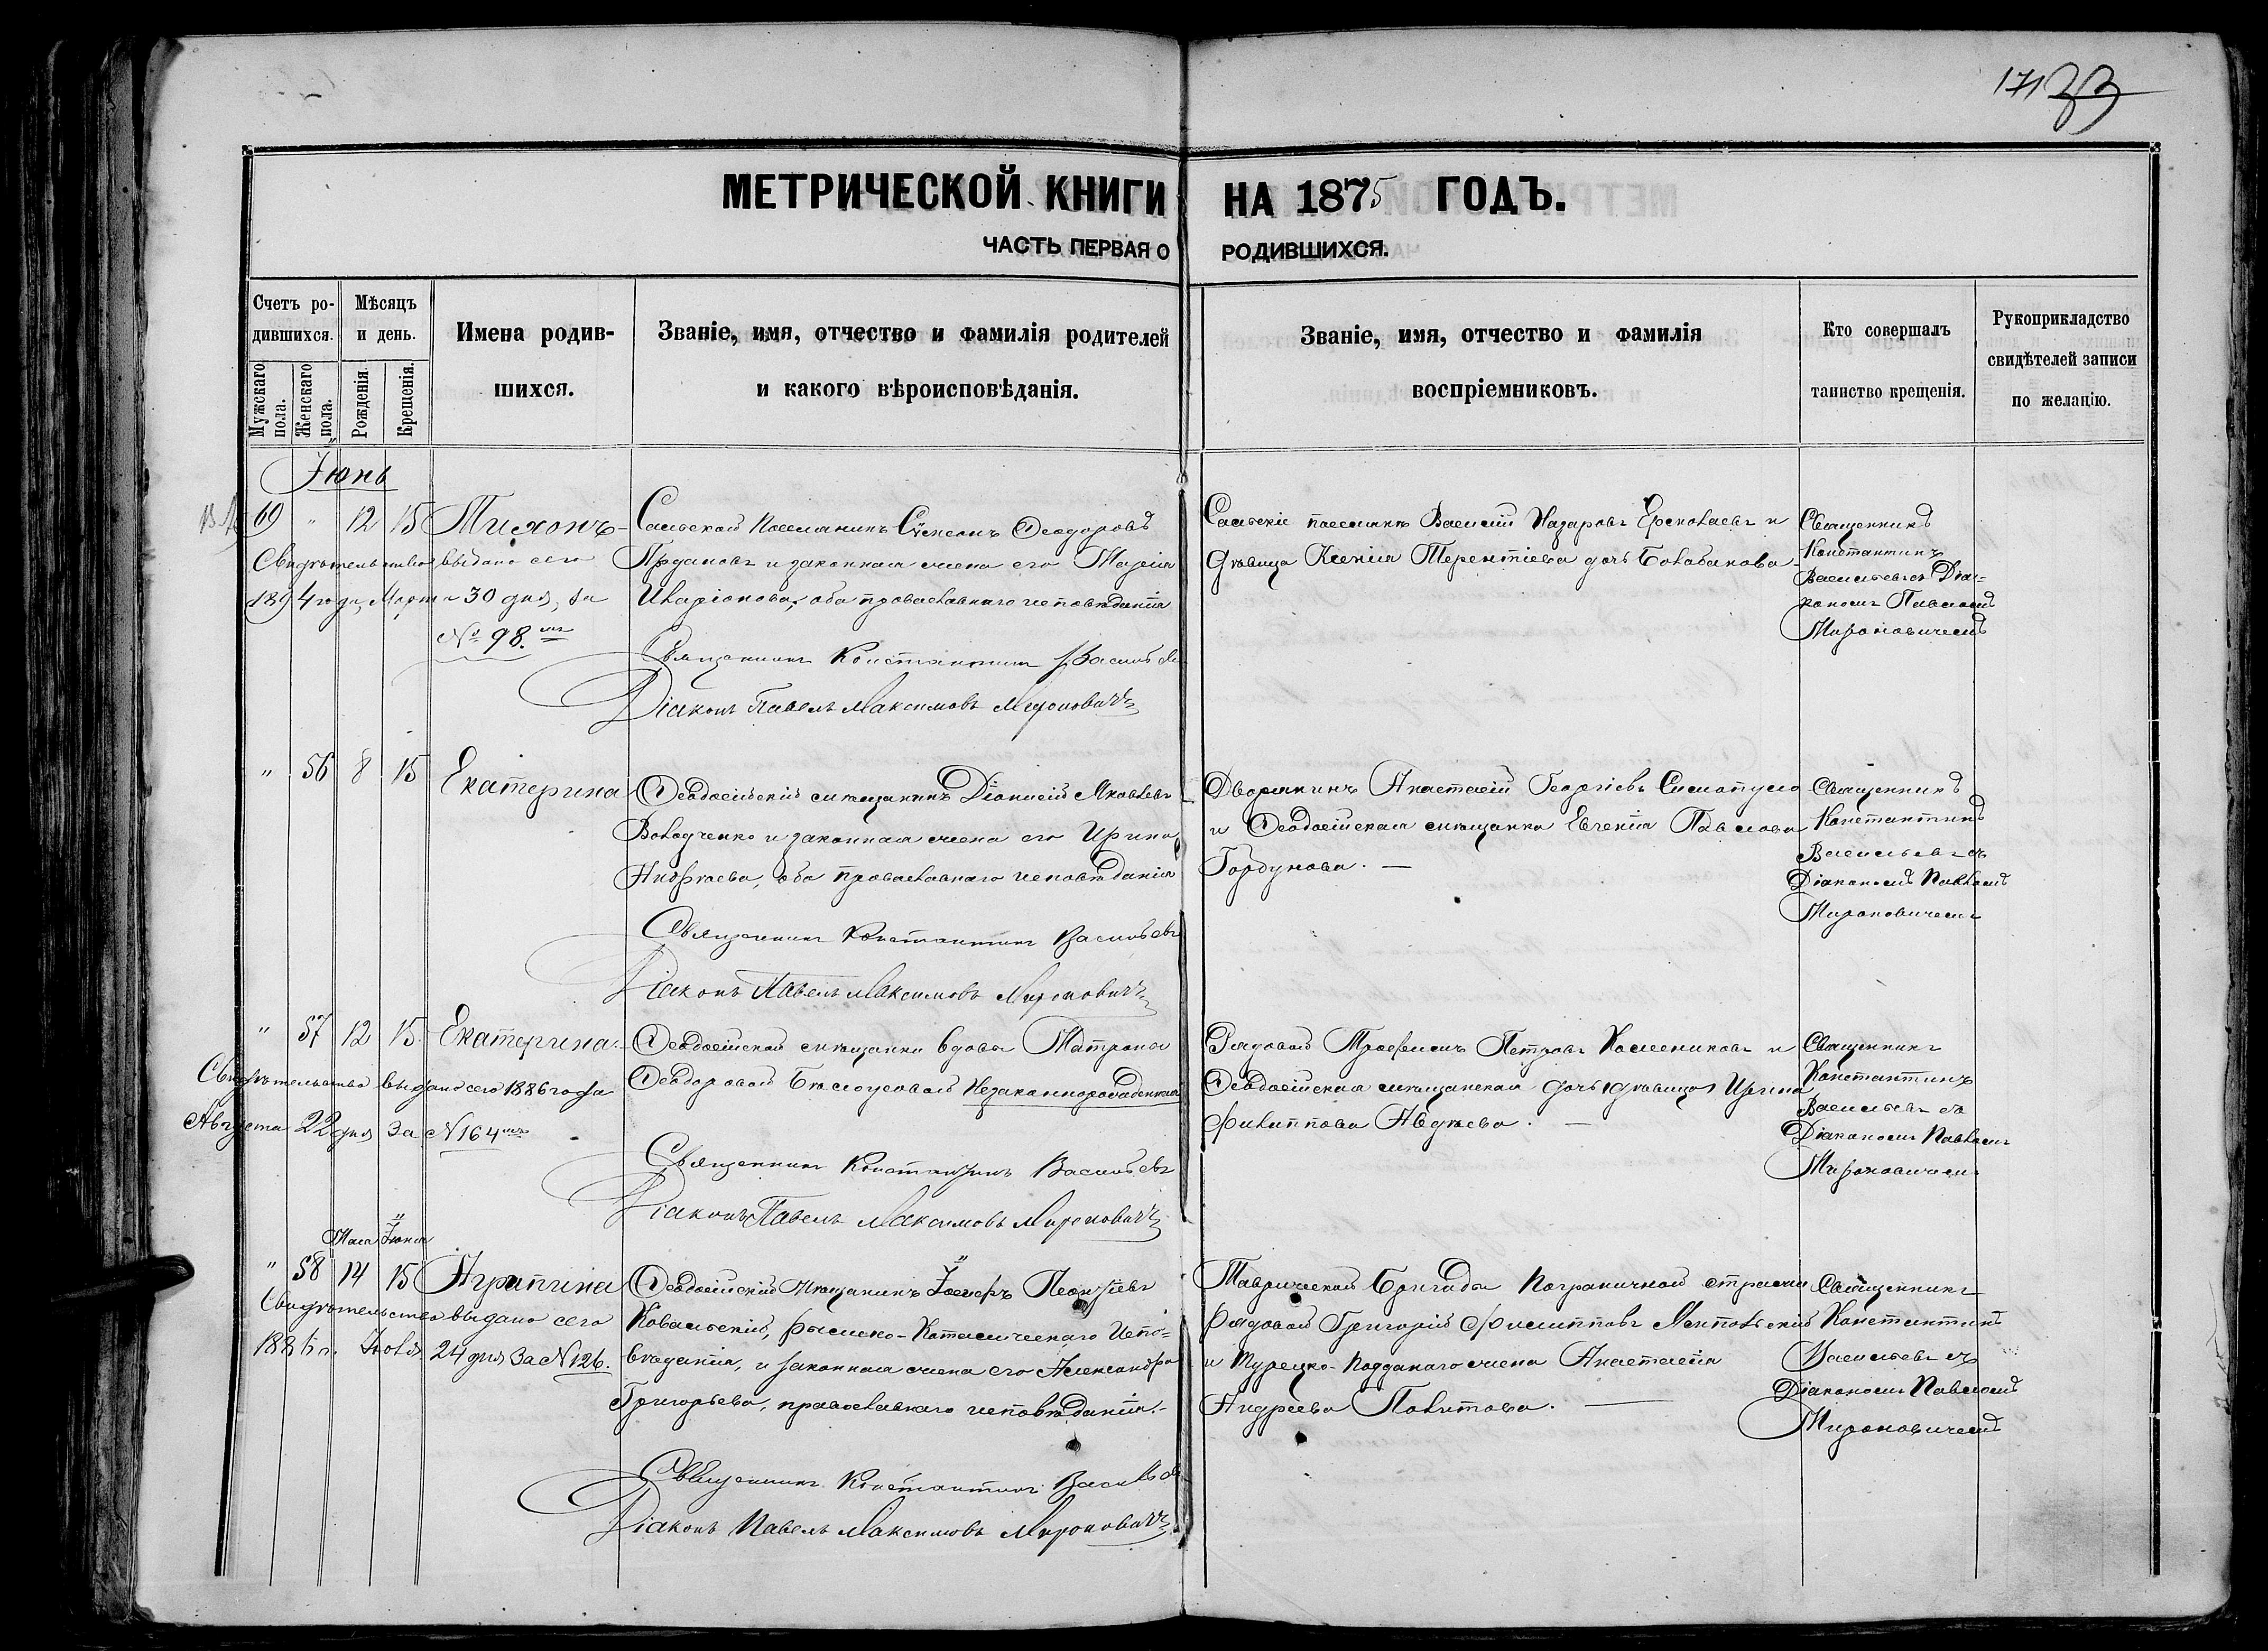 171 33
МЕТРИЧЕСКОЙ КНИГИ НА 1875 ГОДЪ.
ЧАСТЬ ПЕРВАЯ О РОДИВШИХСЯ.
Счетъ родившихся.
Мужскаго пола.
Женскаго пола.
Мѣсяцъ и день.
Рожденія.
Крещенія.
Имена родив-
шихся.
Званіе, имя, отчество и фамилія родителей
и какого вѣроисповѣданія.
Званіе, имя, отчество и фамилія
воспріемниковъ.
Кто совершалъ
таинство крещенія.
Рукоприкладство
свидѣтелей записи
по желанію.
Іюнь
69 " 12 15 Тихонъ
Свидѣтельство выдано сего
1894 года, Марта 30 дня, за
№ 98.
Сельской Поселянинъ Симеонъ Ѳеодоровъ
и законная жена его Марія
Иларіонова, оба православнаго исповѣданія
Священникъ Константинъ Васильевъ
Діаконъ Павелъ Максимовъ Мироновичъ
Василій Назаровъ и
дѣвица Ксенія Терентіева дочь Болабанова
Священникъ
Константинъ
Васильевъ съ Діа-
кономъ Павломъ
Мироновичемъ
" 56 8 15 Екатерина
Ѳеодосійскій мѣщанинъ Діонисій Яковлевъ
Володченко и законная жена его Ирина
Андреева, оба православнаго исповѣданія
Священникъ Константинъ Васильевъ
Діаконъ Павелъ Максимовъ Мироновичъ
Дворянинъ Анастасій Георгіевъ
и Ѳеодосійская мѣщанка Евгенія Павлова
Горбунова.
Священникъ
Константинъ
Васильевъ съ
Діакономъ Павломъ
Мироновичемъ
" 57 12 15 Екатерина
Свидѣтельство выдано сего 1886 года
Августа 22 дня за № 164
Ѳеодосійской мѣщанки вдовы Матроны
Ѳеодоровой Бѣлоусовой Незаконнорожденная
Священникъ Константинъ Васильевъ
Діаконъ Павелъ Максимовъ Мироновичъ
Рядовой Трофимъ Петровъ и
Ѳеодосійская мѣщанская дочь дѣвица Ирина
Филиппова Авдѣева.
Священникъ
Константинъ
Васильевъ съ
Діакономъ Павломъ
Мироновичемъ
Мая Іюня
" 58 14 15 Агрипина
Свидѣтельство выдано сего
Іюля 24 дня За № 126.
Ѳеодосійскій Мѣщанинъ Іосифъ Леонтіевъ
Ковальскій, римско-Католическаго Испо-
вѣданія, и законная жена его Александра
Григорьева, православнаго исповѣданія.
Священникъ Константинъ Васильевъ
Діаконъ Павелъ Максимовъ Мироновичъ
Таврической Бригады Пограничной стражи
рядовой Григорій Филипповъ
и Турецко-подданаго жена Анастасія
Андреева Политова.
Священникъ
Константинъ
Васильевъ съ
Діакономъ Павломъ
Мироновичемъ